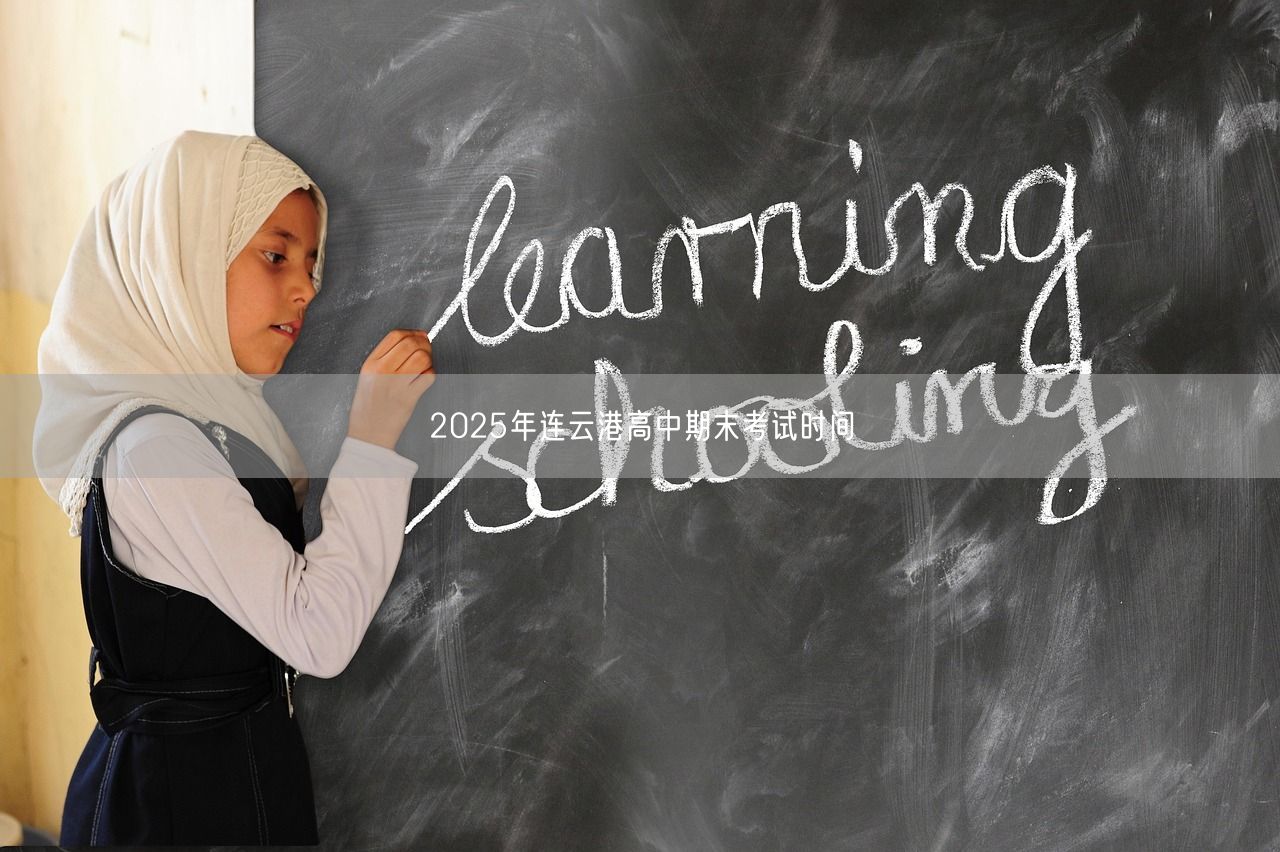 learning
schooling
2025年连云港高中期末考试时间